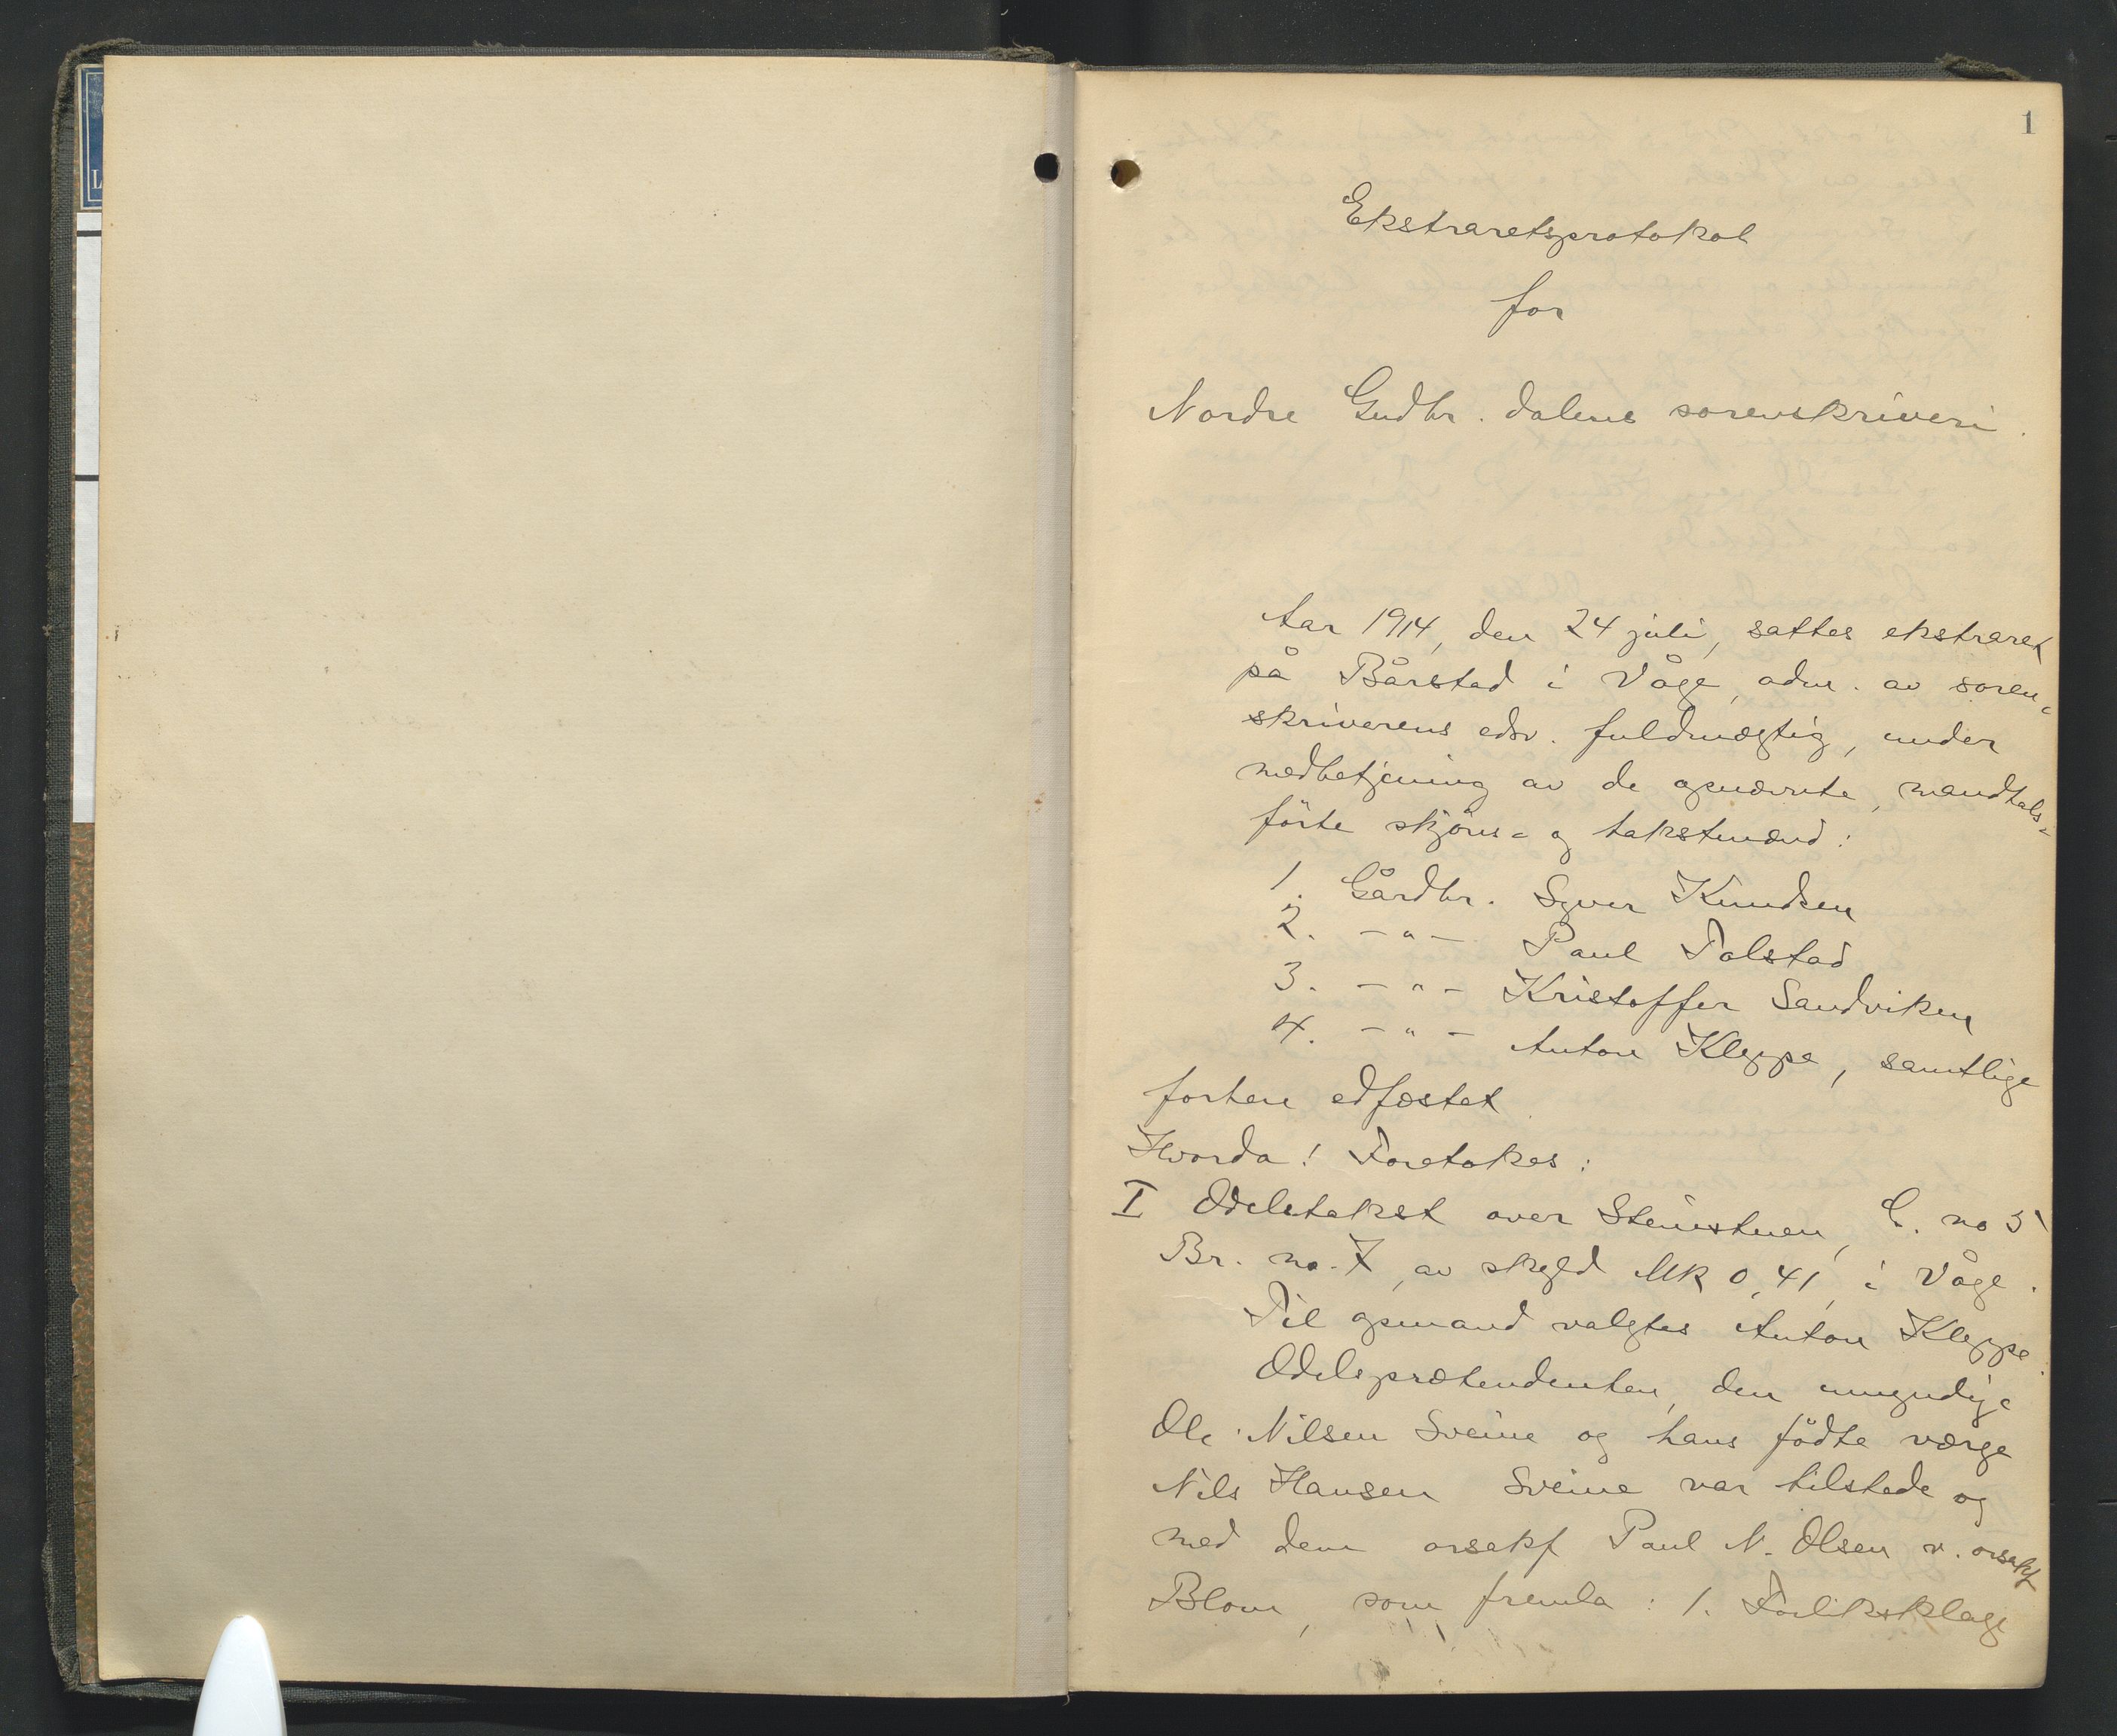 1
Ekstraretsprotokol
for
Nordre Gudbr. dalens sorenskriveri.
Aar 1914, den 24 juli, sattes ekstraret
på Bårstad i Våge, adm. av soren-
skriverens edsv. fuldmægtig, under
medbetjening av de opnævnte, mandtals-
förte skjöns- og takstmænd:
1. Gårdbr. Syver Knudsen
2. -"- Paul Tolstad
3. -"- Kristoffer Sandviken
4. -"- Anton Kleppe, samtlige
forhen edfæstet
Hvorda! Foretokes:
I Odelstakst over Steinstuen, G. no 5
Br. no. 7, av skyld Mk 0,41, i Våge.
Til opmand valgtes Anton Kleppe.
Odelsprætendenten, den umyndige
Ole Nilsen Sveine og hans födte værge
Nils Hansen Sveine var tilstede og
med dem orsakf Paul N. Olsen v. orsakf
Blom, som fremla: 1. Forliksklage